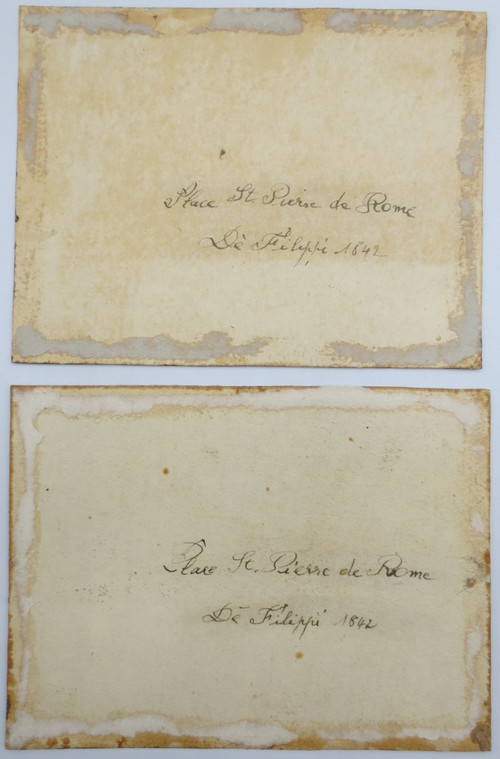 Place St. Pierre de Rome
Dè Filippi 1842
Place St. Pierre de Rome
Dè Filippi 1842